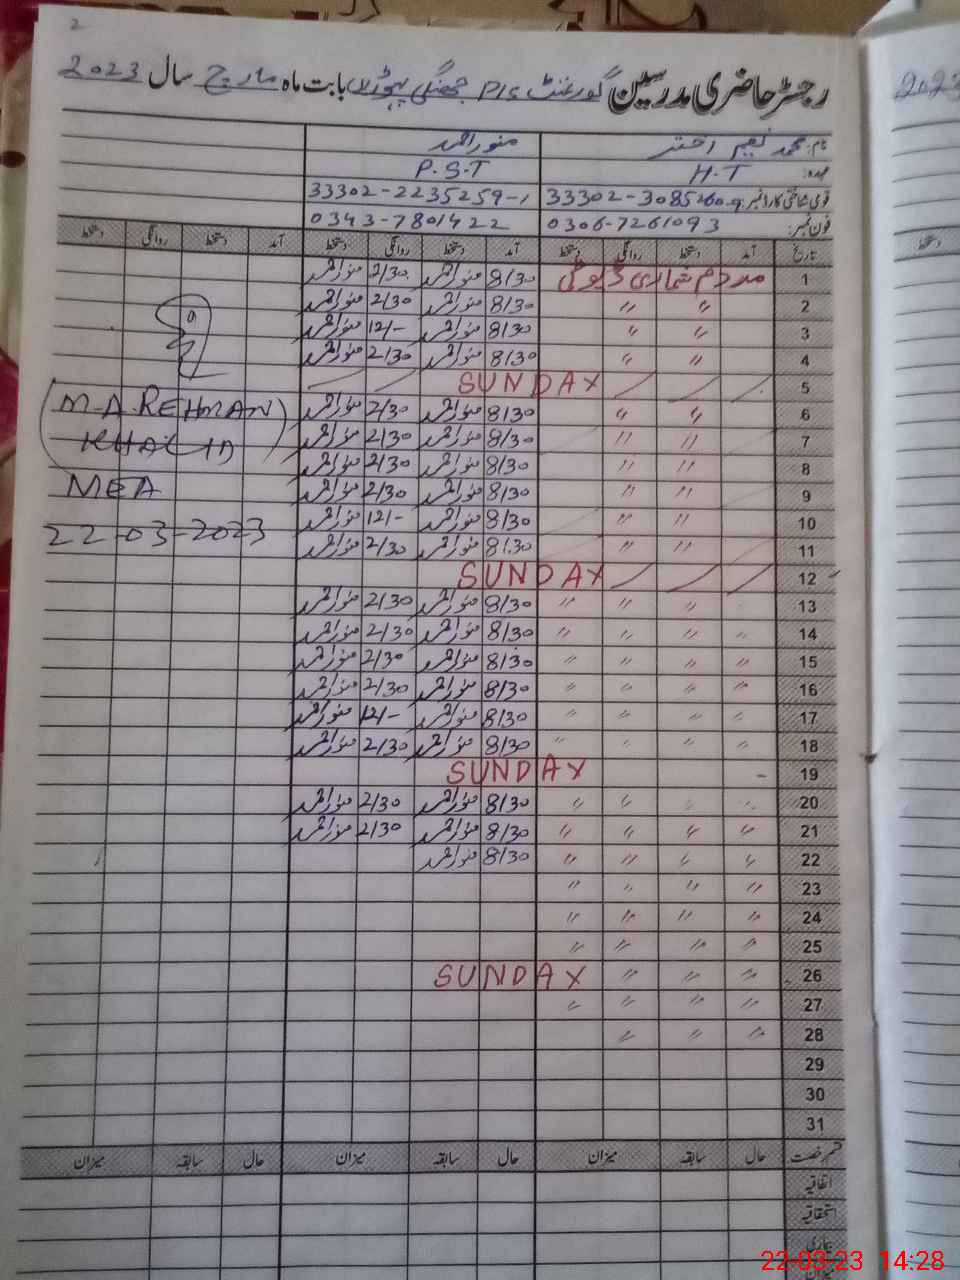 2
رجسٹر حاضری مدرسین گورنمنٹ P/S جھنگی پہوڑاں بابت ماہ مارچ سال 2023
نام: محمد نعیم اختر منور احمد
عہدہ: H.T P.S.T
قومی شناختی کارڈ نمبر: 33302-3085260-9 33302-2235259-1
فون نمبر: 0306-7261093 0343-7801422
تاریخ آمد دستخط روانگی دستخط آمد دستخط روانگی دستخط آمد دستخط روانگی دستخط
1 مردم شماری ڈیوٹی 8/30 منور احمد 2/30 منور احمد
2 〃 〃 8/30 منور احمد 2/30 منور احمد
3 〃 〃 8/30 منور احمد 12/- منور احمد
4 〃 〃 8/30 منور احمد 2/30 منور احمد
5 SUNDAY
6 〃 〃 8/30 منور احمد 2/30 منور احمد
7 〃 〃 8/30 منور احمد 2/30 منور احمد
8 〃 〃 8/30 منور احمد 2/30 منور احمد
9 〃 〃 8/30 منور احمد 2/30 منور احمد
10 〃 〃 8/30 منور احمد 12/- منور احمد
11 〃 〃 8/30 منور احمد 2/30 منور احمد
12 SUNDAY
13 〃 〃 〃 8/30 منور احمد 2/30 منور احمد
14 〃 〃 〃 〃 8/30 منور احمد 2/30 منور احمد
15 〃 〃 〃 〃 8/30 منور احمد 2/30 منور احمد
16 〃 〃 〃 〃 8/30 منور احمد 2/30 منور احمد
17 〃 〃 〃 〃 8/30 منور احمد 12/- منور احمد
18 〃 〃 〃 〃 8/30 منور احمد 2/30 منور احمد
19 SUNDAY
20 〃 〃 〃 〃 8/30 منور احمد 2/30 منور احمد
21 〃 〃 〃 〃 8/30 منور احمد 2/30 منور احمد
22 〃 〃 〃 〃 8/30 منور احمد
23 〃 〃 〃 〃
24 〃 〃 〃 〃
25 〃 〃 〃 〃
26 〃 〃 〃 SUNDAY
27 〃 〃 〃 〃
28 〃 〃 〃
29
30
31
(M.A.REHMAN
KHALID)
MEA
22-03-2023
قسم رخصت حال سابقہ میزان حال سابقہ میزان حال سابقہ میزان
اتفاقیہ
استحقاقیہ
بیماری
میزان
2023
دستخط
22-03-23 14:28